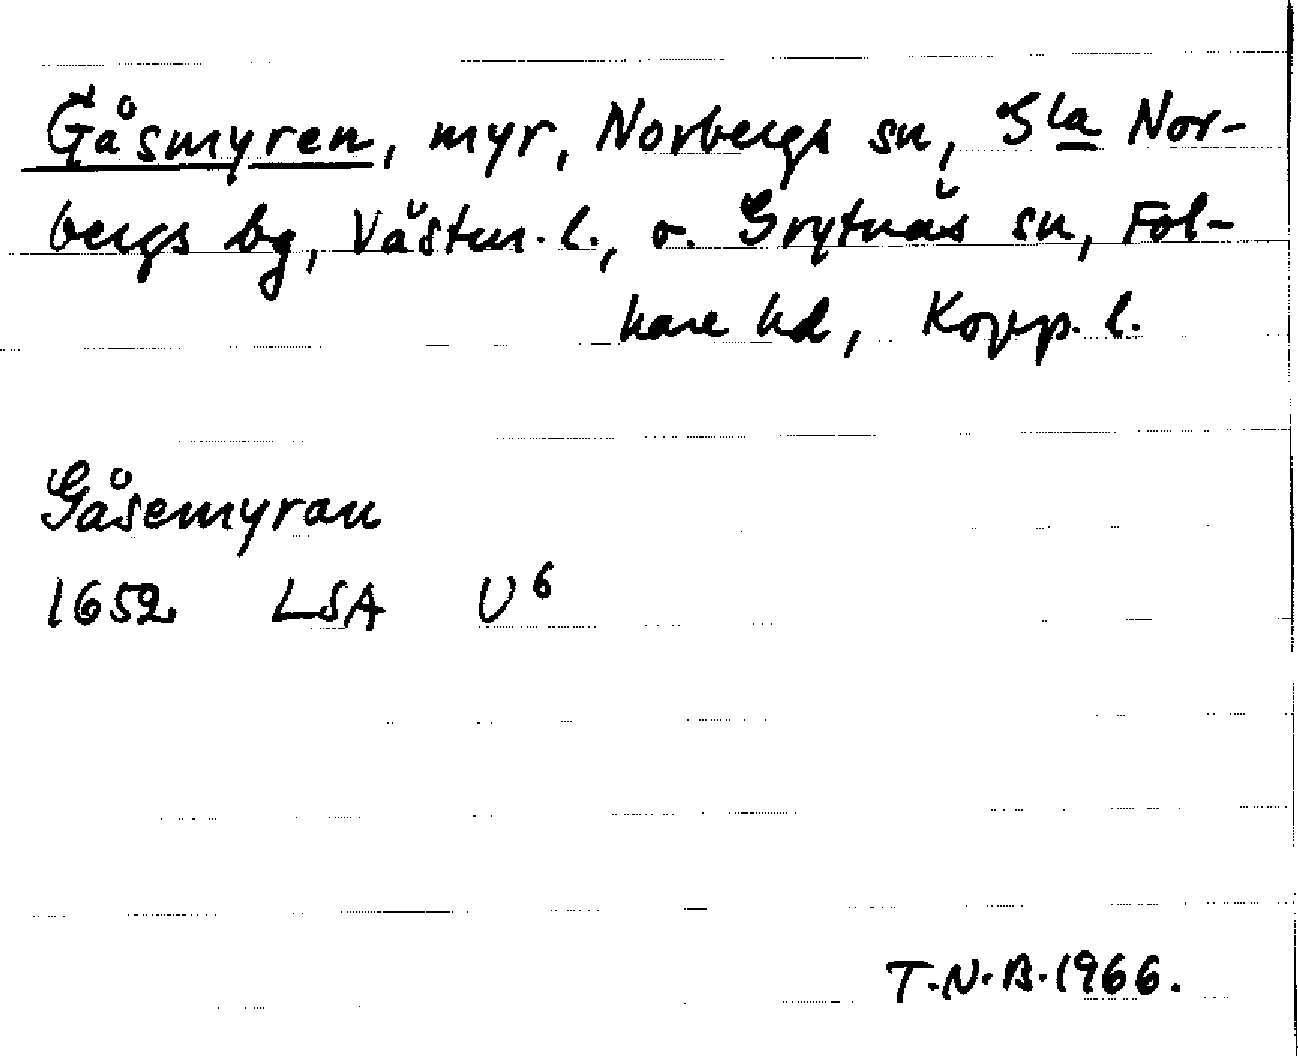 Gåsmyren, myr, Norbergs sn, G:la Nor-
bergs bg, Västm. l., o. Grytnäs sn, Fol-
kare hd, Kopp. l.
Gåsemyran
1652 LSA U6
T.N.B. 1966.